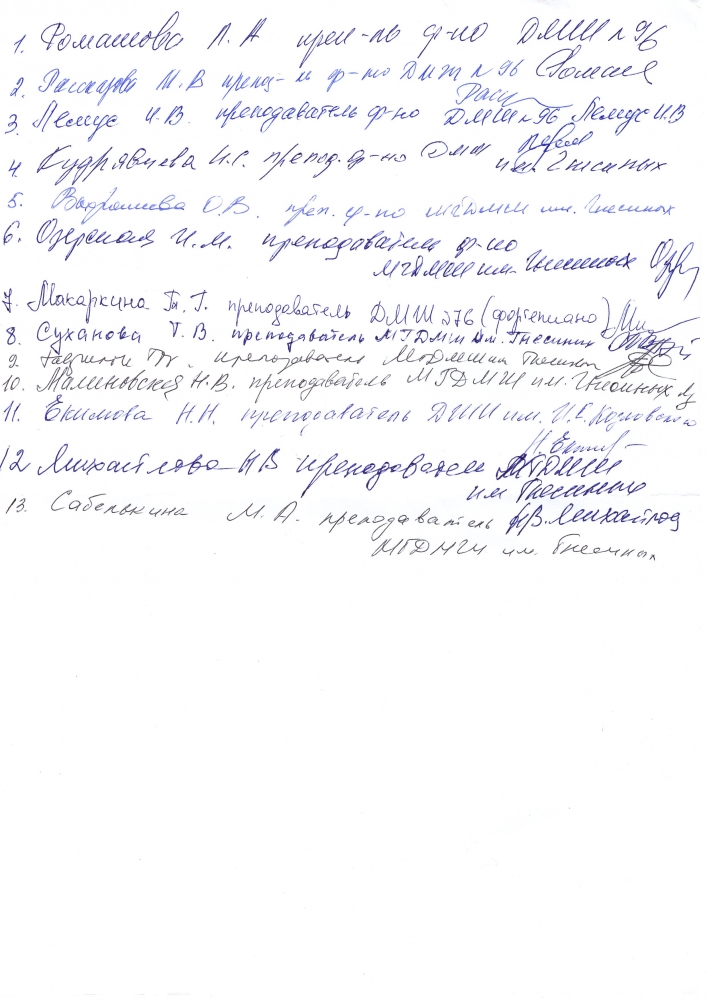 1. Ромашова Л. А преп-ль ф-но ДМШ № 96
2. М. В препод-ль ф-но ДМШ № 96
3. Лемус И. В. преподаватель ф-но ДМШ № 96 Лемус И. В
4. Кудрявцева И. С. препод. ф-но ДМШ
им. Гнесиных
5. О. В. преп. ф-но МГДМШ им. Гнесиных
6. Озерская И. М. преподаватель ф-но
МГДМШ им. Гнесиных
7. Макаркина Т. Г. преподаватель ДМШ №76 (фортепиано)
8. Суханова Т. В. преподаватель МГДМШ им. Гнесиных
9. преподаватель МГДМШ им Гнесиных
10. Малиновская Н. В. преподаватель МГДМШ им. Гнесиных
11. Екимова Н. Н. преподаватель ДШИ им. И. С. Козловского
12 Михайлова НВ преподаватель МГДМШ
им Гнесиных
13. Сабелькина М. А. преподаватель Н.В. Михайлова
МГДМШ им. Гнесиных